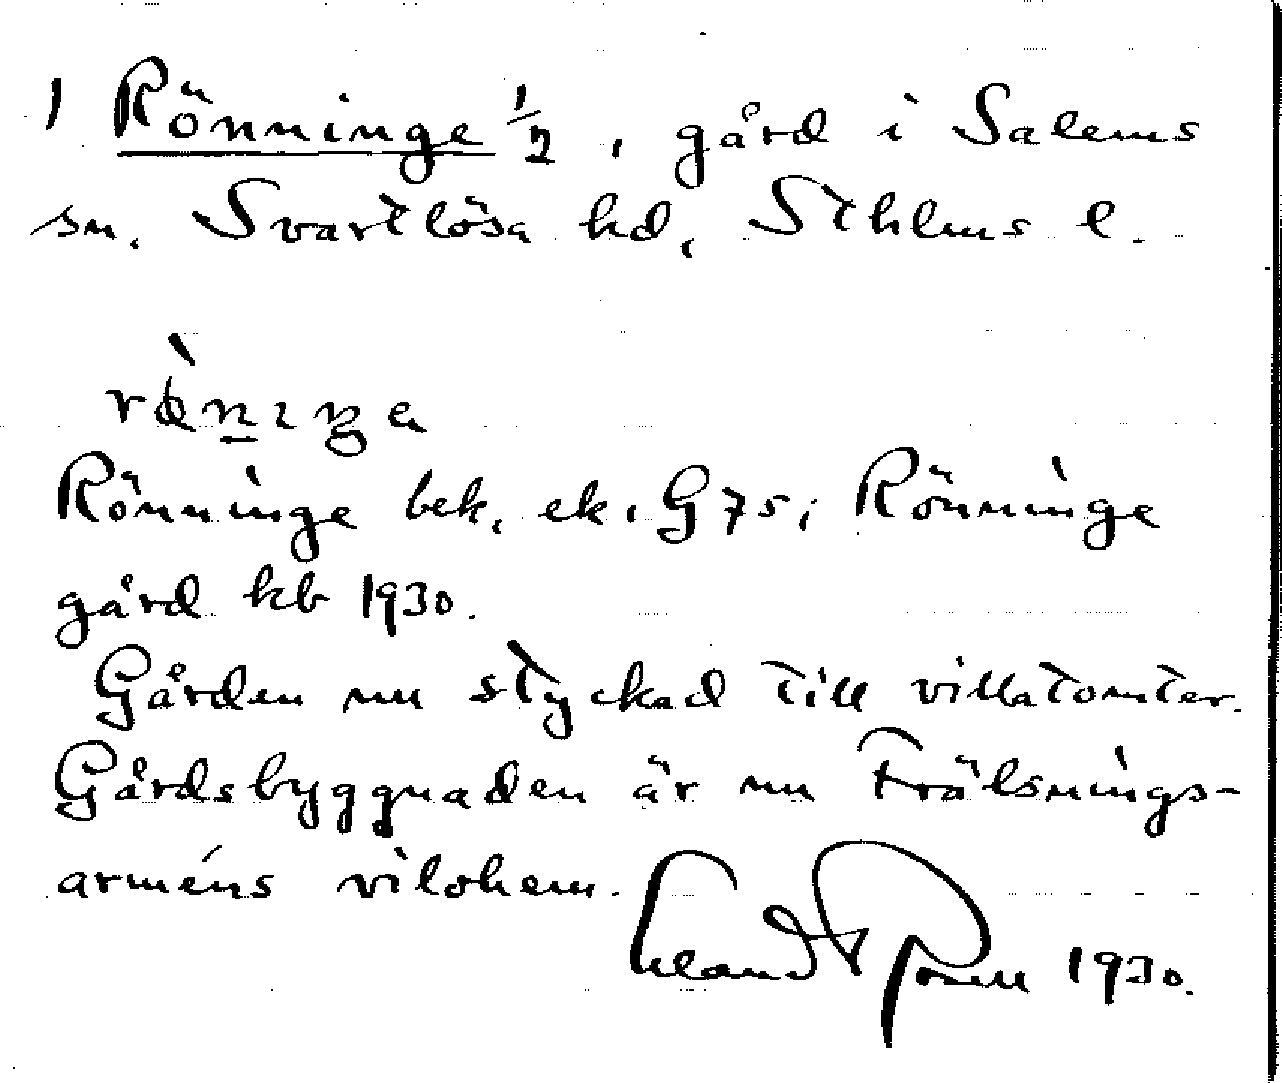 1 Rönninge 1/2, gård i Salems
sn, Svartlösa hd, Sthlms l.
Rönninge bek. ek. G 75; Rönninge
gård kb 1930.
Gården nu styckad till villatomter.
Gårdsbyggnaden är nu Frälsnings-
arméns vilohem.
1930.